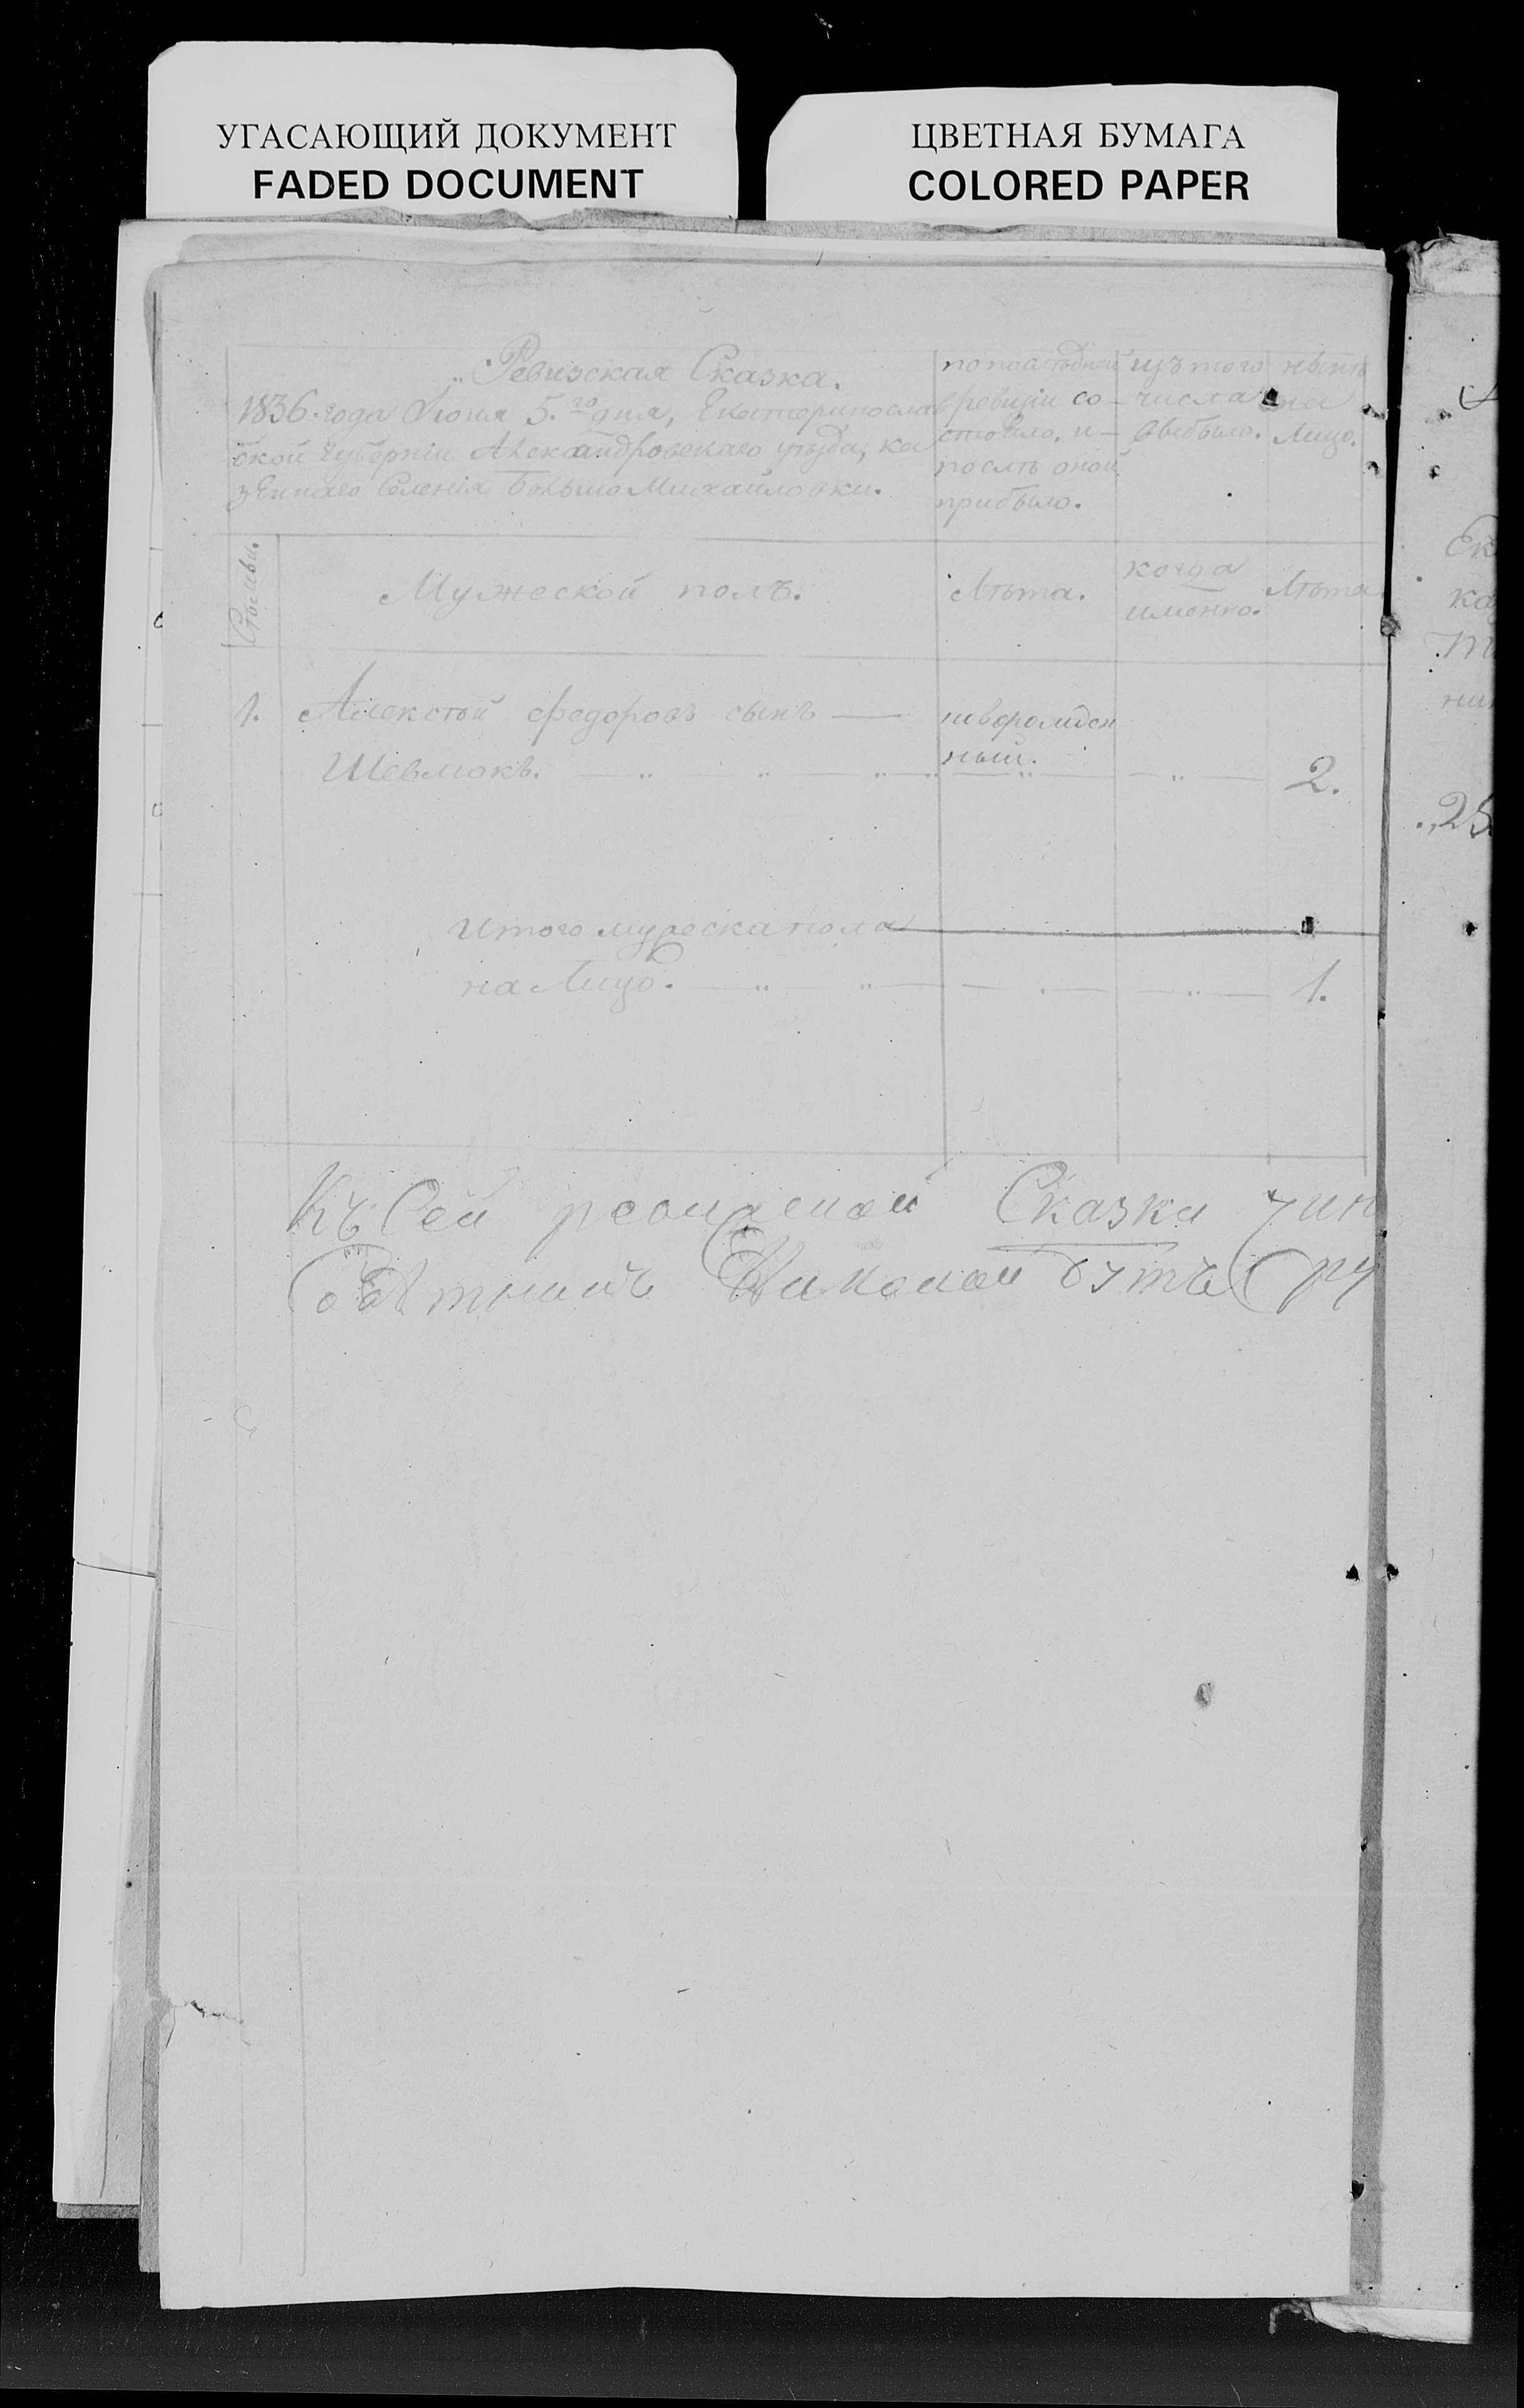 УГАСАЮЩИЙ ДОКУМЕНТ
FADED DOCUMENT
ЦВЕТНАЯ БУМАГА
COLORED PAPER
Ревизская Сказка.
1836. года Июня 5. го дня, Екатеринослав
ской Губернии Александровскаго уезда, ка
зеннаго Селения Больше Михайловки.
по последней
ревизии со-
стояло, и
после оной
прибыло.
изъ того
числа
выбыло.
ныне
на
Лицо.
Семьи.
Мужеской полъ.
Лета.
когда
имянно.
Лета
1. Алексѣй Федоровъ сынъ
Шевлюкъ.
новорожден
ный.
2.
Итого мужеска пола
на Лицо.
1.
Къ Сей Сказки
Николай
25